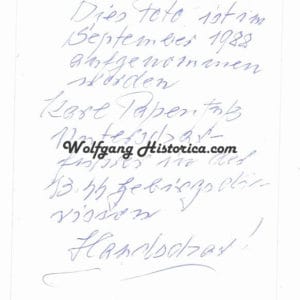 Dies Foto ist im
September 1988
aufgenommen
worden
Karl
Wolfgang Historica.com
Unterschar-
führer in der
13. SS Gebirgsdi-
vission
Handschar!